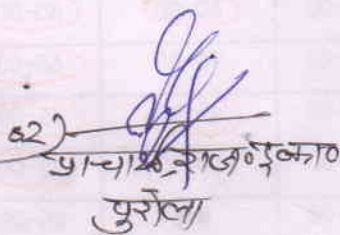 02)
प्राचार्य, रा०इ०का०
पुरोला